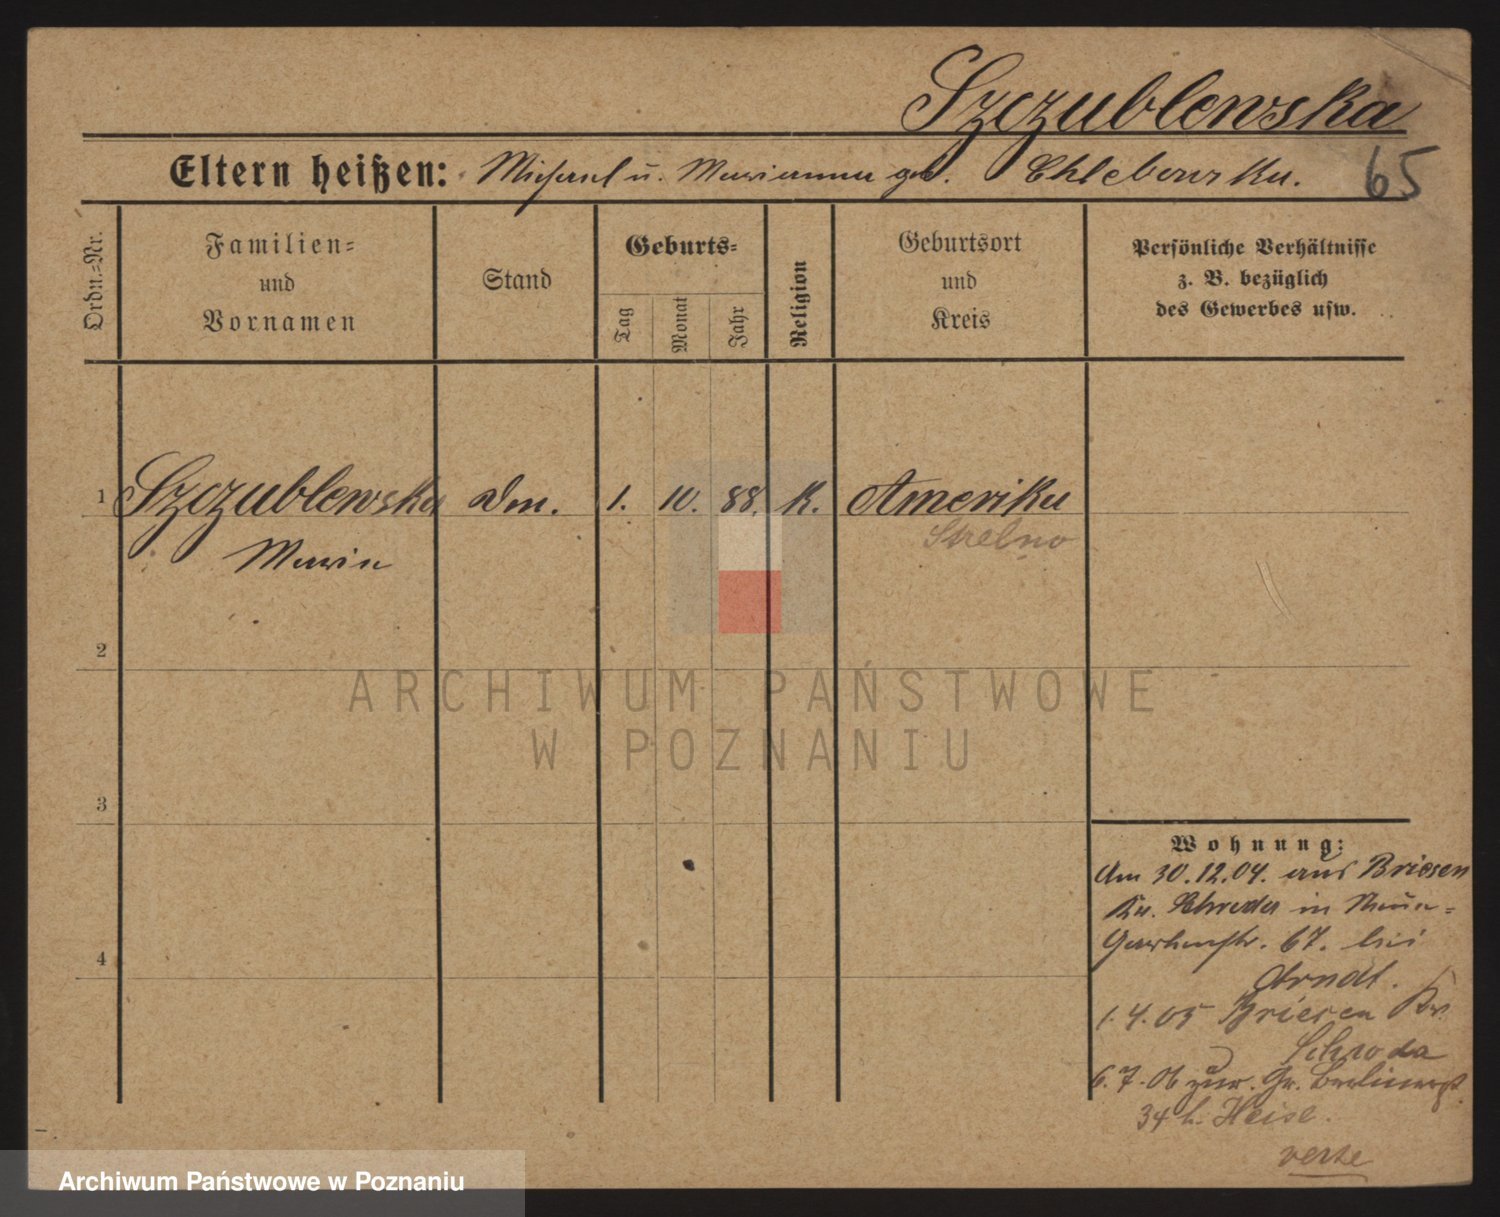 Szczublewska
Eltern heißen: Michael u. Marianna geb. Chlebowska.
65
Ordn.=Nr.
Familien=
und
Vornamen
Stand
Geburts=
Tag
Monat
Jahr
Religion
Geburtsort
und
Kreis
Persönliche Verhältnisse
z. B. bezüglich
des Gewerbes usw.
1 Szczublewska
Maria
1. 10. 88. K. Amerika
Strelno
2
3
4
Wohnung:
Am 30.12.04. aus Briesen
Kr. Schroda in
67. bei
Arndt.
1.4.05 Briesen Kr.
Schroda
6.7.06 zur. Gr. Berlinerst.
34 b. Heise.
verte
ARCHIWUM PAŃSTWOWE
W POZNANIU
Archiwum Państwowe w Poznaniu